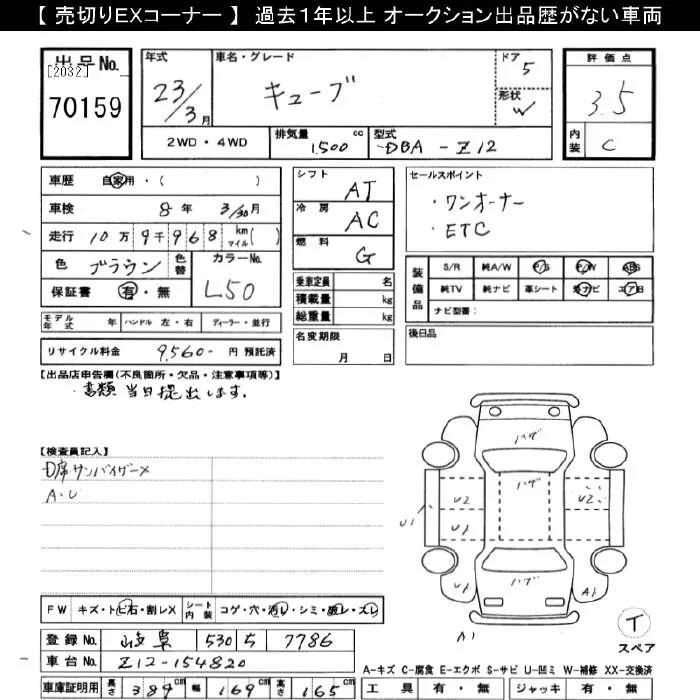 【 売切りEXコーナー 】 過去1年以上 オークション出品歴がない車両
出品No.
[2032]
70159
年式
23/3月
車名・グレード
キューブ
ドア
5
形状
W
評価点
3.5
内装
C
2WD・4WD
排気量 1,500 cc
型式 DBA-Z12
車歴 自家用・( )
車検 8年 3/30月
走行 10万9千968 km マイル( )
色 ブラウン 色替
カラーNo. L50
保証書 有・無
シフト AT
冷房 AC
燃料 G
乗車定員 名
積載量 kg
総重量 kg
名変期限
月 日
セールスポイント
・ワンオーナー
・ETC
装備品
S/R 純A/W P/S P/W ABS
純TV 純ナビ 革シート エア
ナビ型番:
後日品
モデル年式 年 ハンドル 左・右 ディーラー・並行
リサイクル料金 9,560- 円 預託済
【出品店申告欄(不良箇所・欠品・注意事項等)】
・書類当日提出します。
【検査員記入】
D席サンバイザーX
A・U
ハゲ
ハゲ
U2
U2
U1
U1
ハゲ
U1
A1
A1
T
スペア
FW キズ・トビ石・割レX
シート内装 コゲ・穴・汚レ・シミ・破レ・スレ
登録No. 岐阜 530 5 7786
車台No. Z12-154820
車庫証明用 長さ 389 cm 幅 169 cm 高さ 165 cm
A-キズ C-腐食 E-エクボ S-サビ U-凹ミ W-補修 XX-交換済
工具 有・無 ジャッキ 有・無